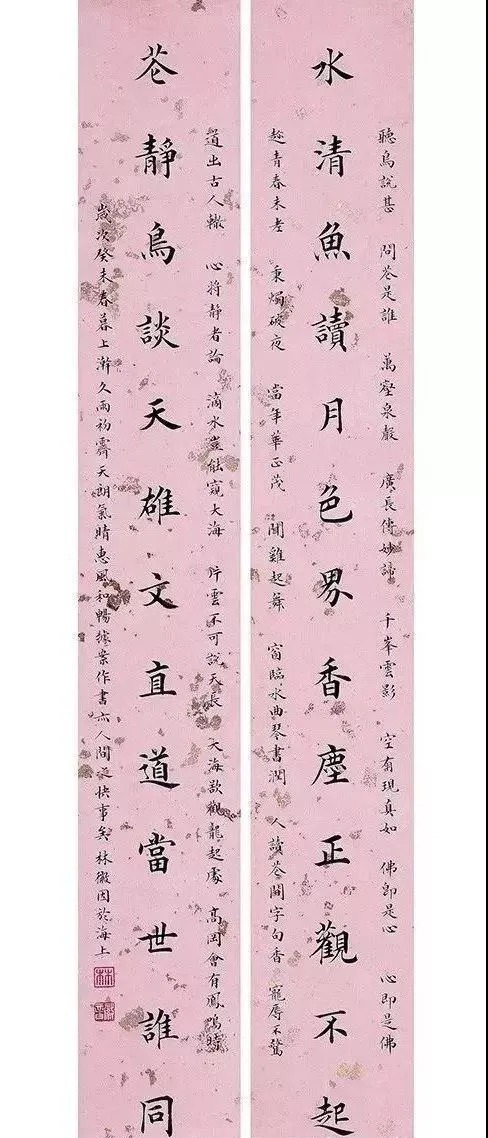 聽鳥說甚　問花是誰　萬壑泉聲　廣長傳妙諦　千峯雲影　空有現真如　佛即是心　心即是佛
水清魚讀月色界香塵正觀不起
趁青春未老　秉燭破夜　當年華正茂　聞雞起舞　窗臨水曲琴書潤　人讀花間字句香　寵辱不驚
道出古人轍　心將静者論　滴水豈能窺大海　片雲不可說天長　大海欲觀龍起處　高岡會有鳳鳴時
花靜鳥談天雄文直道當世誰同
歲次癸未春暮上澣久雨初霽天朗氣晴惠風和暢據案作書亦人間快事矣林徽因於海上